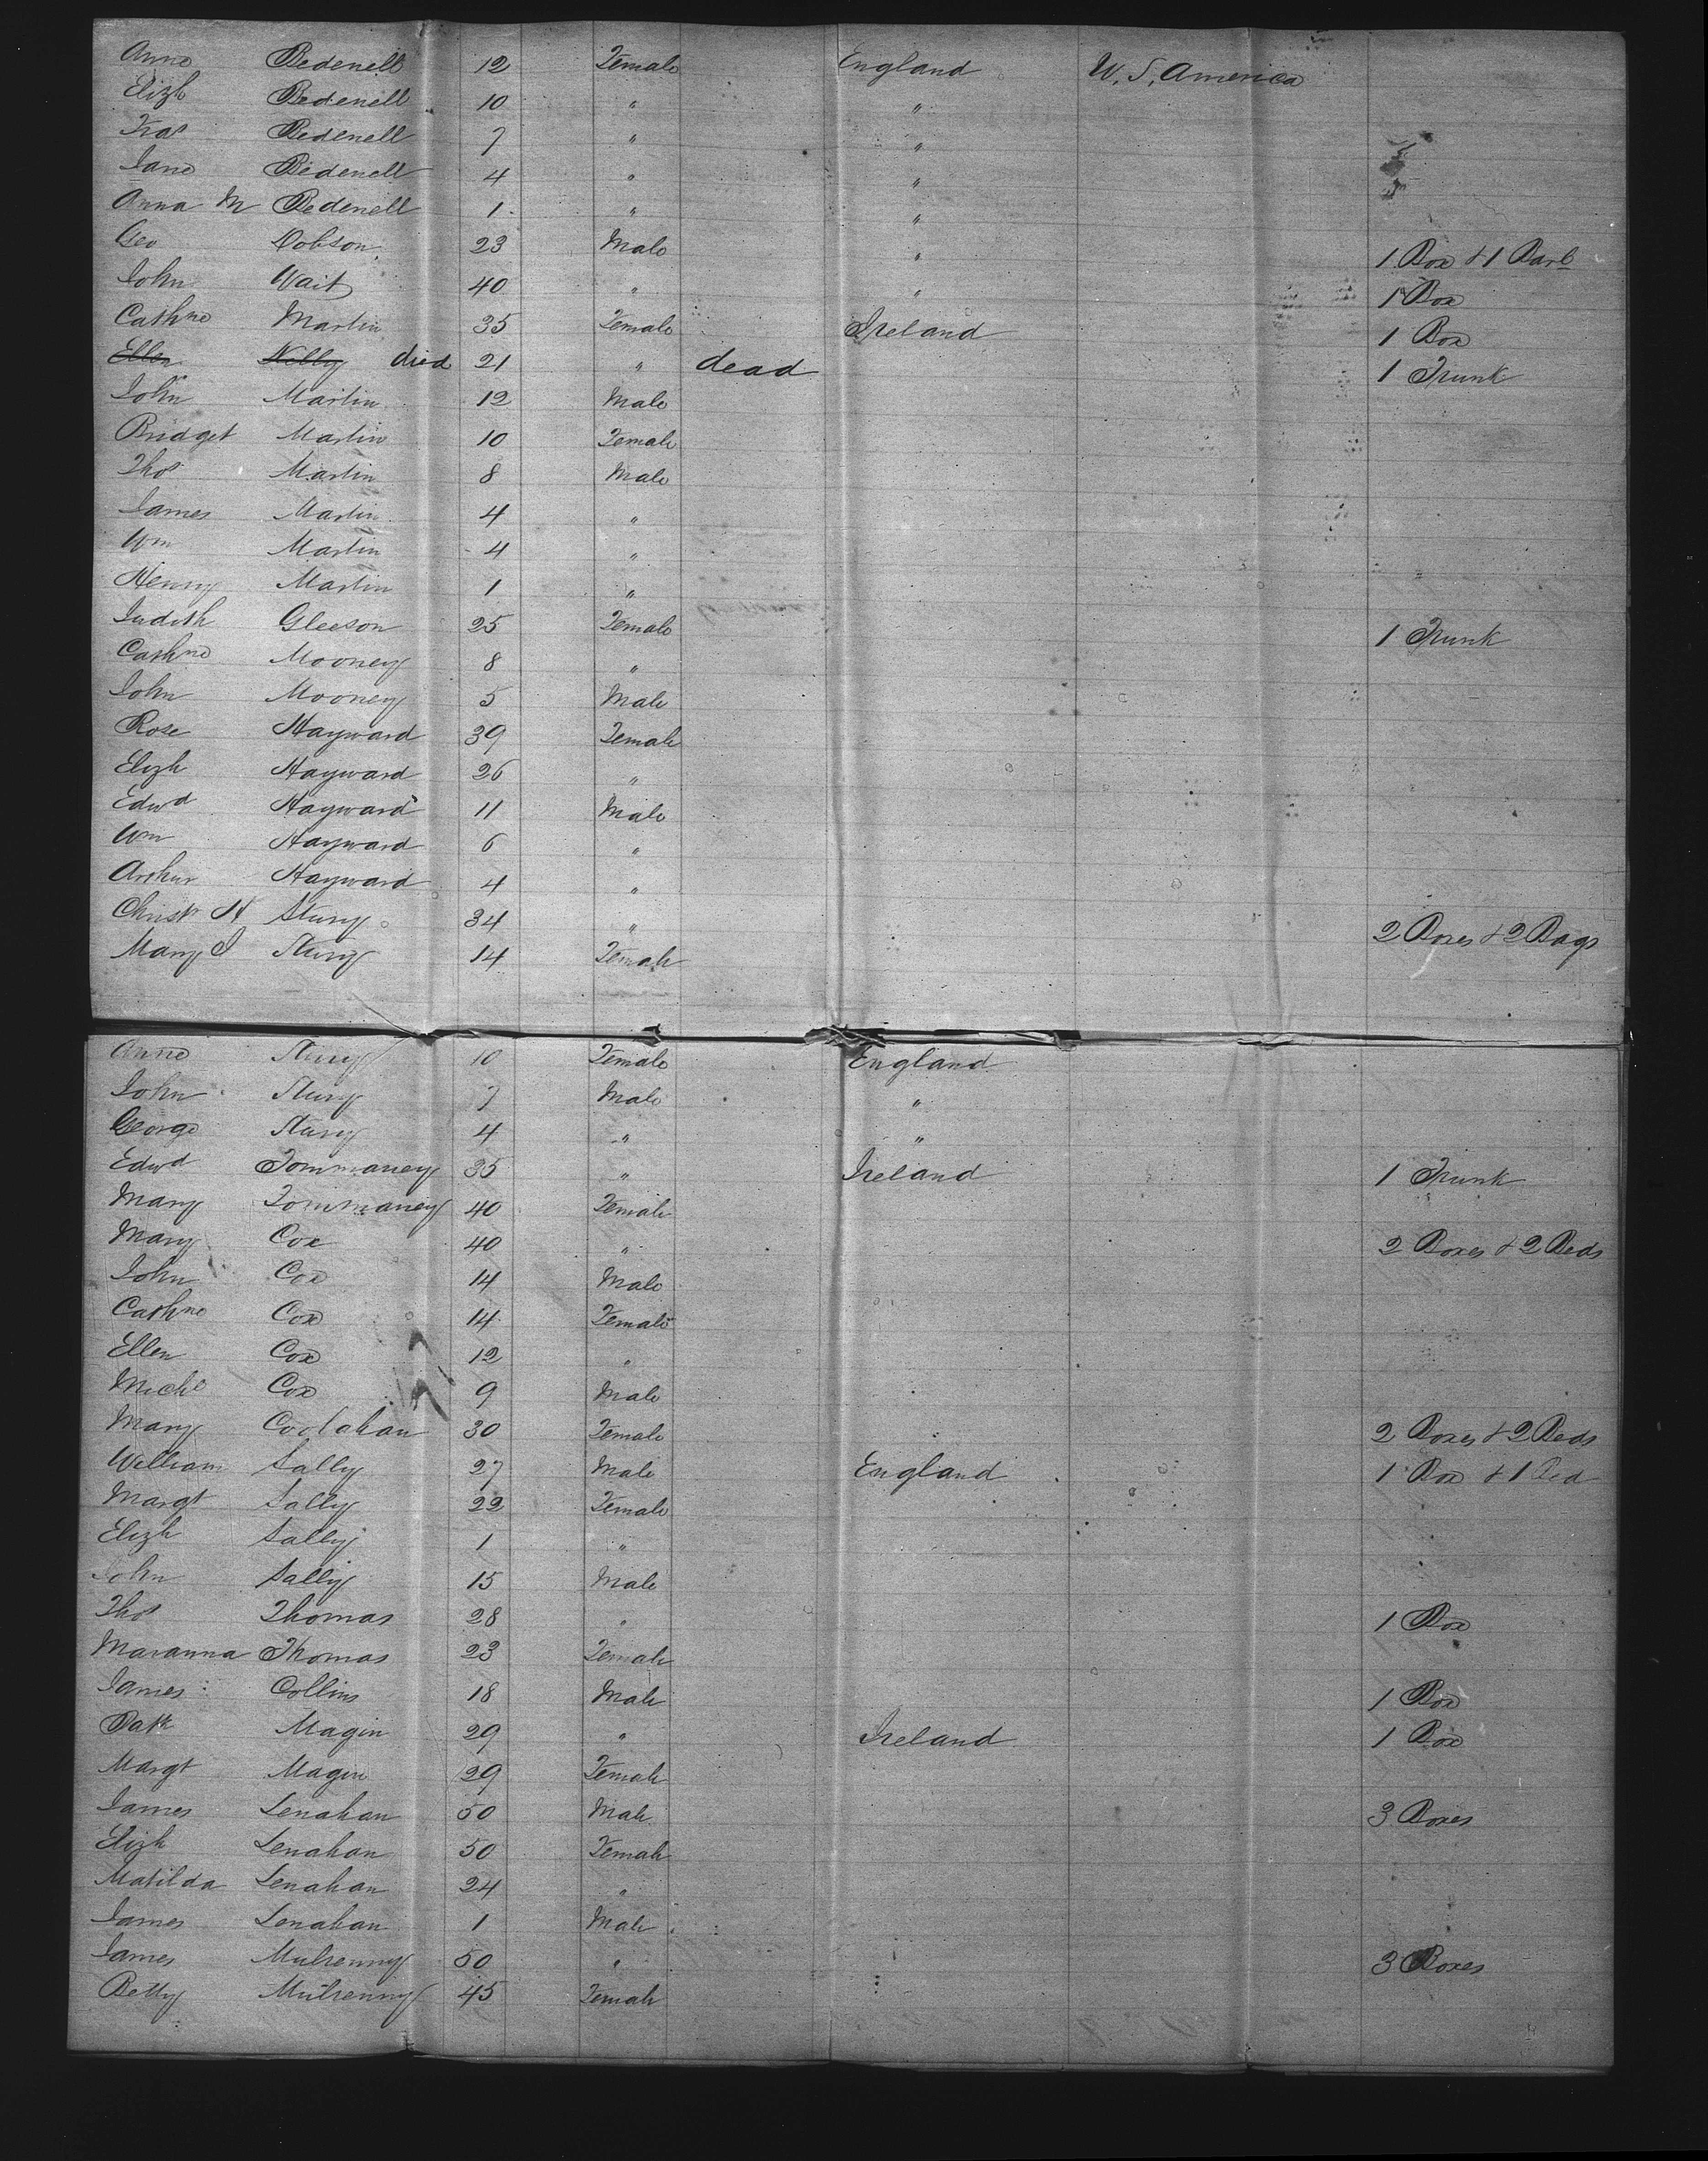 Anne Bedenell 12 Female England U. S. America
Elizh Bedenell 10 " "
Fras Bedenell 7 " "
Jane Bedenell 4 " "
Anna M Bedenell 1 " "
Geo Dobson 23 Male " 1 Box & 1 Barl
John Wait 40 " " 1 Box
Cathne Martin 35 Female Ireland 1 Box
Ellen Kelly died 21 " dead 1 Trunk
John Martin 12 Male
Bridget Martin 10 Female
Thos Martin 8 Male
James Martin 4 "
Wm Martin 4 "
Henry Martin 1 "
Judith Gleeson 25 Female 1 Trunk
Cathne Mooney 8 "
John Mooney 5 Male
Rose Hayward 39 Female
Elizh Hayward 26 "
Edwd Hayward 11 Male
Wm Hayward 6 "
Arthur Hayward 4 "
Christr H Stury 34 " 2 Boxes & 2 Bags
Mary J Stury 14 Female
Anne Stury 10 Female England
John Stury 7 Male "
George Stury 4 " "
Edwd Tommaney 35 " Ireland 1 Trunk
Mary Tommaney 40 Female
Mary Cox 40 " 2 Boxes & 2 Beds
John Cox 14 Male
Cathne Cox 14 Female
Ellen Cox 12 "
Michl Cox 9 Male
Mary Coolahan 30 Female 2 Boxes & 2 Beds
William Sally 27 Male England 1 Box & 1 Bed
Margt Sally 22 Female
Elizh Sally 1 "
John Sally 15 Male
Thos Thomas 28 " 1 Box
Maranna Thomas 23 Female
James Collins 18 Male 1 Box
Patk Magin 29 " Ireland 1 Box
Margt Magin 29 Female
James Lenahan 50 Male 3 Boxes
Elizh Lenahan 50 Female
Matilda Lenahan 24 "
James Lenahan 1 Male
James Mulrenny 50 " 3 Boxes
Betty Mulrenny 45 Female